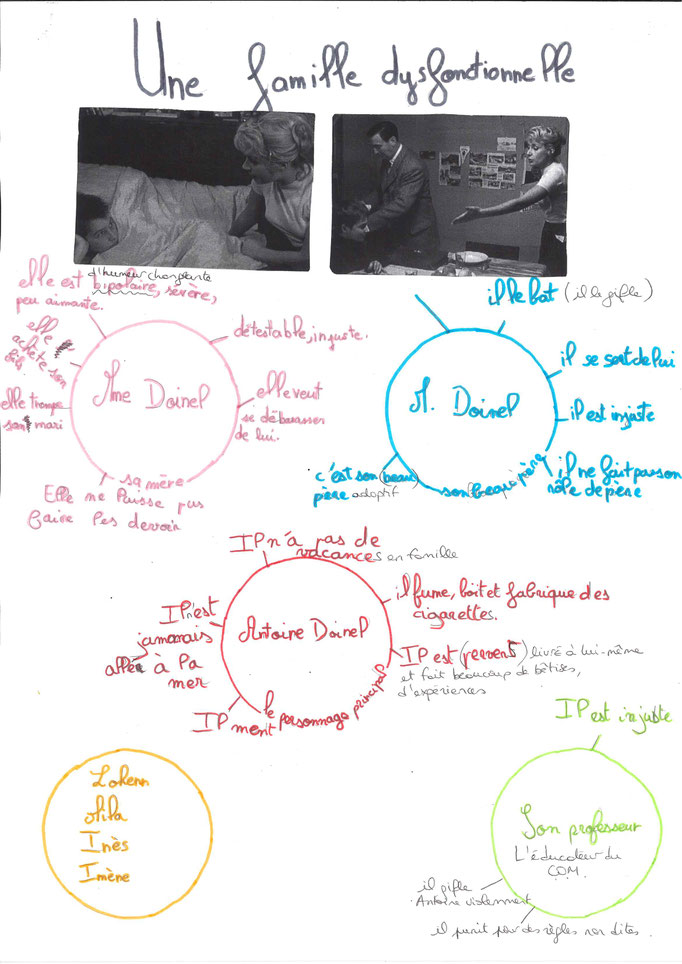 Une famille dysfonctionnelle
d'humeur changeante
elle est bipolaire, sévère,
peu aimante.
elle
achète son
fils
elle trompe
son mari
détestable, injuste.
elle veut
se débarasser
de lui.
Mme Doinel
sa mère
Elle ne laisse pas
faire les devoir
il le bat (il le gifle)
il se sert de lui
il est injuste
il ne fait pas son
rôle de père
M. Doinel
c'est son (beau)
père adoptif
son beau père
Il n'a pas de
vacances en famille
il fume, boit et fabrique des
cigarettes.
Il n'est
jamarais
allée à la
mer
Antoine Doinel
Il est (pervers) livré à lui-même
et fait beaucoup de bêtises,
d'expériences
le personnage principal
Il ment
Il est injuste
Lokenn
Inès
Imène
Son professeur
L'éducateur du
COM.
il gifle
Antoine violemment
il punit pour des règles non dites.